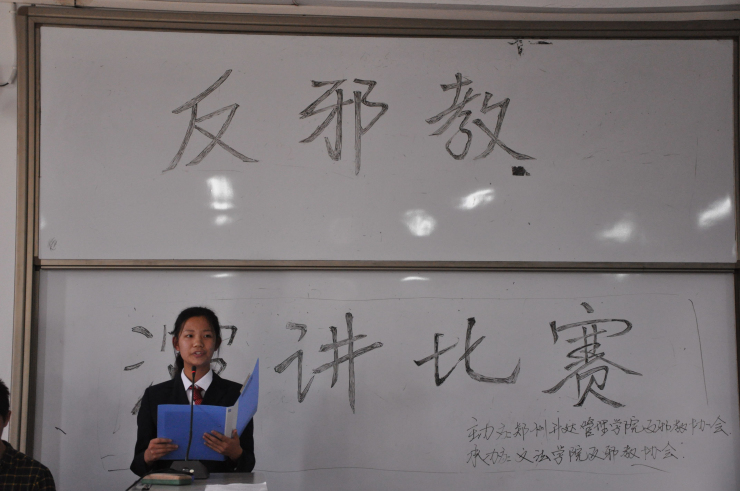 反邪教
演讲比赛
主办:郑州科技管理学院反邪教协会
承办:文法学院反邪教协会